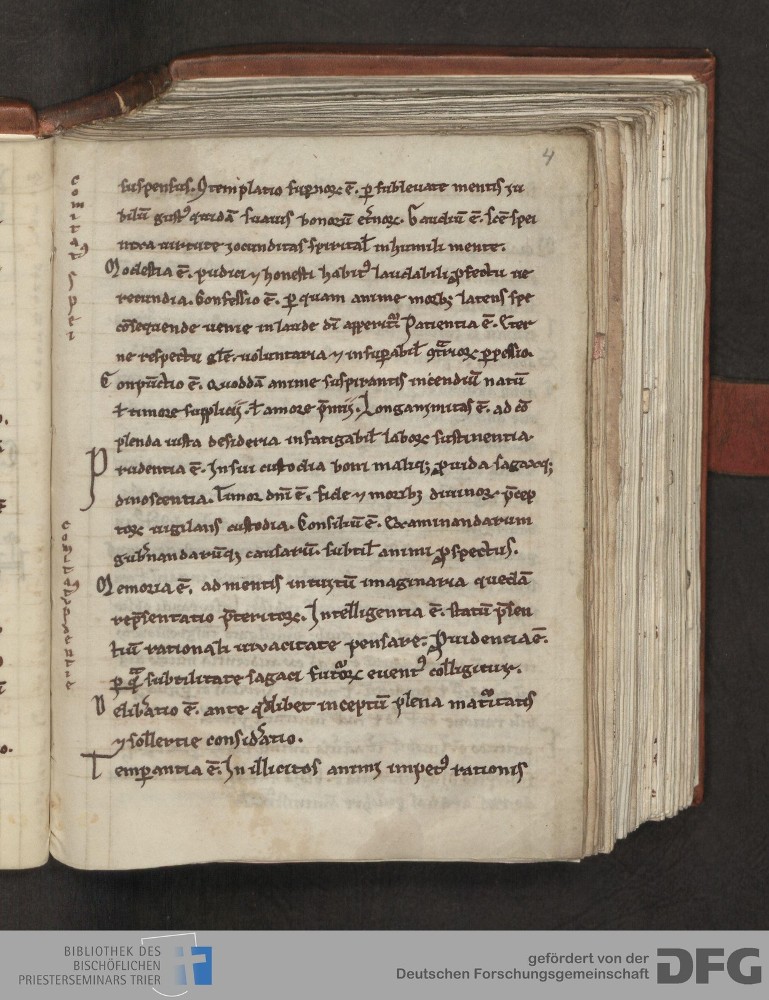 4
suspensus. ꝯtemplatio supnoꝝ ē. ꝑ subleuate mentis iu
bilū gustꝰ quidā suauis bonorū etͥnoꝝ. Gaudiū ē. scē spei
iocunditas spiritał in humili mente.
Modestia ē. pudici ⁊ honesti habitꝰ laudabili ꝓfectu ue
recundia. Confessio ē. ꝑ quam anime morbꝰ latens spe
cōsequende uenie in laude dī apperitᷣ Patientia ē. Eter
ne respectu glē. uoluntaria ⁊ insupabił ꝯtͣrioꝝ ꝑpessio.
Conpūctio ē. quoddā anime suspirantis incendiū natū
ł timore supplicij. ł amore p̄mij. Longanimitas ē. ad cō
plenda iusta desideria infatigabił laboꝝ sustinentia.
Prudentia ē. In sui custodia boni maliqꝫ ꝓuida sagaxqꝫ
dinoscentia. Timor dnī ē. fide ⁊ moribꝫ diuinoꝝ p̄cep
toꝝ uigilans custodia. Consiliū ē. Examinandarum
gub̄nandarūqꝫ causarū. subtił animi ꝓspectus.
Memoria ē. ad mentis intuitū imaginaria quedā
rep̄sentatio p̄teritoꝝ. Intelligentia ē. statū p̄sen
tiū rationali uiuacitate pensare. Prouidentia ē.
ꝑ qͣ subtilitate sagaci futͦroꝝ euentꝰ colligitur.
Delib̄atio ē. ante qͦdlibet inceptū plena matͥtatis
⁊ sollertie consid̄atio.
Temperantia ē. In illicitos animi impetꝰ rationis
BIBLIOTHEK DES
BISCHÖFLICHEN
PRIESTERSEMINARS TRIER
gefördert von der
Deutschen Forschungsgemeinschaft
DFG